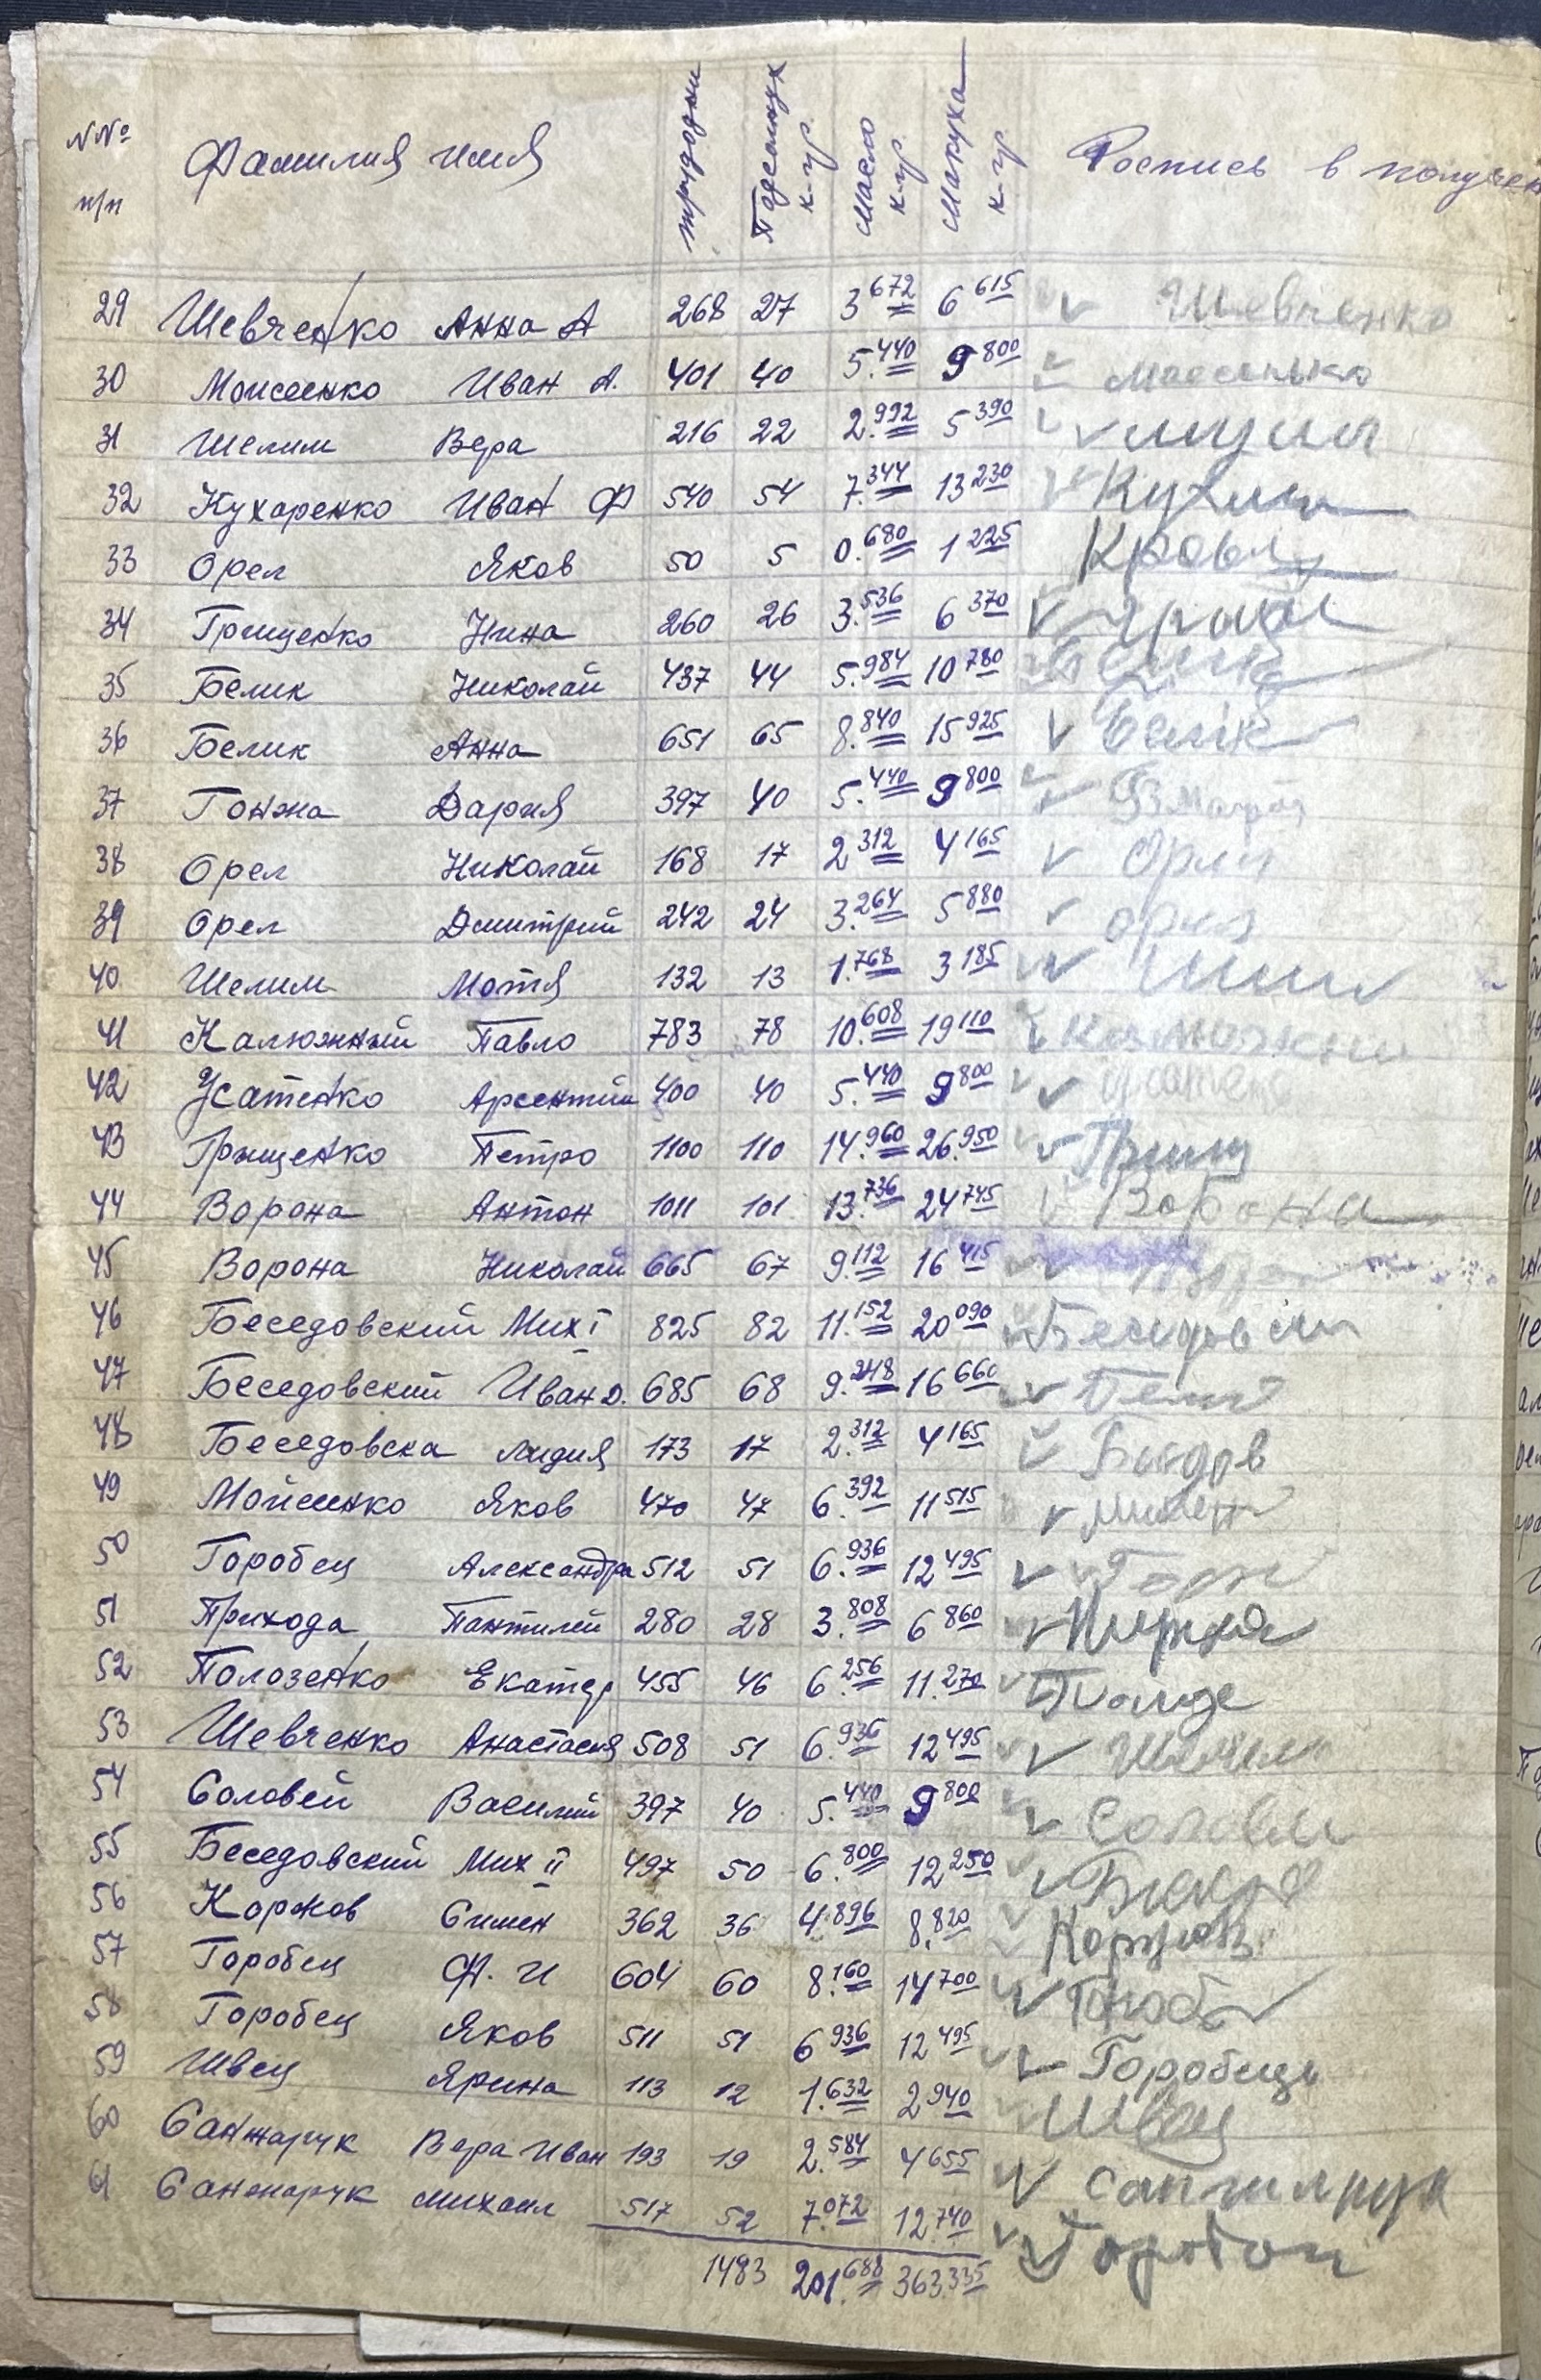 №№ п/п Фамилия имя трудодни Подсолнух к-гр. Масло к-гр. Макуха к-гр. Роспись в получен
29 Шевченко Анна А 268 27 3 672 6 615 Шевченко
30 Моисеенко Иван А. 401 40 5.440 9 800
31 Шелим Вера 216 22 2.992 5 390
32 Кухаренко Иван Ф 540 54 7.344 13 230
33 Орел Яков 50 5 0.680 1 225
34 Грищенко Нина 260 26 3.536 6 370
35 Белик Николай 437 44 5.984 10 780
36 Белик Анна 651 65 8.840 15 925 Белик
37 Гонжа Дария 397 40 5.440 9 800
38 Орел Николай 168 17 2 312 4 165
39 Орел Дмитрий 242 24 3.264 5 880
40 Шелим Мотя 132 13 1.768 3 185
41 Калюжный Павло 783 78 10.608 19 110
42 Усатенко Арсентий 400 40 5.440 9 800
43 Грищенко Петро 1100 110 14.960 26.950 Грищ
44 Ворона Антон 1011 101 13.736 24 745 Ворона
45 Ворона Николай 665 67 9.112 16 415
46 Беседовский Мих I 825 82 11.152 20 090
47 Беседовский Иван Д. 685 68 9.248 16 660
48 Беседовска Лидия 173 17 2.312 4 165
49 Мойсенко Яков 470 47 6.392 11 515
50 Горобец Александра 512 51 6.936 12 495
51 Прихода Пантилей 280 28 3.808 6 860
52 Полозенко Екатер 455 46 6.256 11.270
53 Шевченко Анастасия 508 51 6.936 12 495
54 Соловей Василий 397 40 5.440 9 800
55 Беседовский Мих II 497 50 6.800 12 250
56 Коржов Симен 362 36 4.896 8.820 Коржов
57 Горобец Ф. И 604 60 8.160 14 700
58 Горобец Яков 511 51 6 936 12 495 Горобець
59 Швец Ярина 113 12 1.632 2 940 Швец
60 Санжарук Вера Иван 193 19 2.584 4 655
61 Санжарук Михаил 517 52 7.072 12 740
1483 201.688 363.335